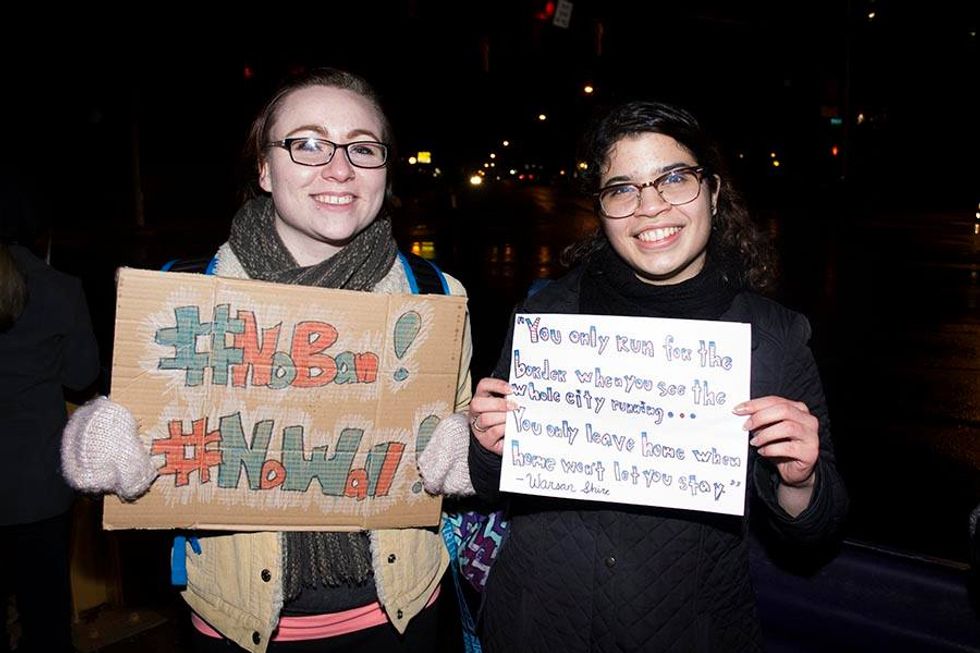 #NoBan!
#NoWall!
"You only run for the
border when you see the
whole city running...
You only leave home when
home won't let you stay."
- Warsan Shire